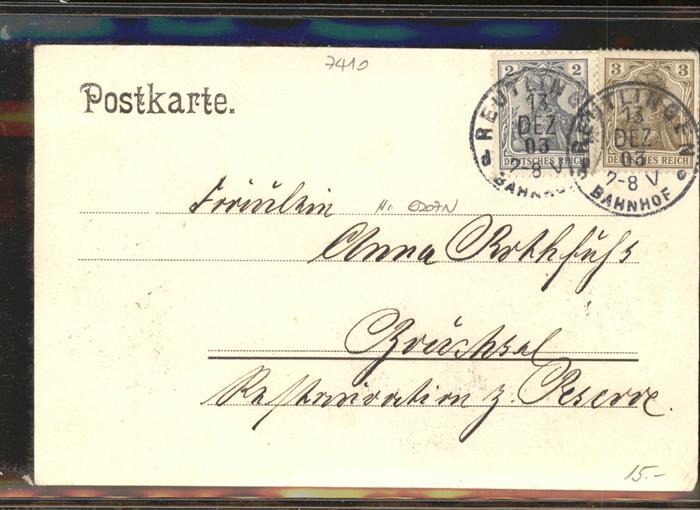 7410
Postkarte.
2 3 3
DEUTSCHES REICH
DEUTSCHES REICH
REUTLINGEN
13
DEZ
03
7-8 V
a
BAHNHOF
REUTLINGEN
13
DEZ
03
7-8 V
BAHNHOF
Fräulein
Anna Rothfuß
Bruchsal
Restauration z. Reserve.
15.-